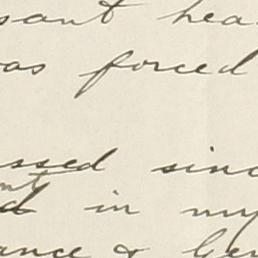 sant hea
as forced
ssed sinc
nt
d in my
ance & Gen